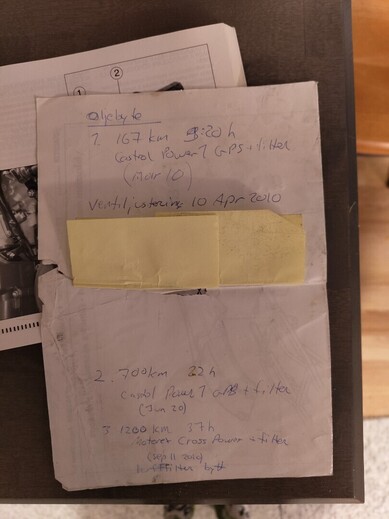 Oljebyte
1. 167 km :20 h
Castrol Power 1 GPS + filter
(Mar 10)
Ventiljustering 10 Apr 2010
2. 700 km 22 h
Castrol Power 1 GPS + filter
(Jun 20)
3 1200 km 37 h
Cross Power + filter
(Sep 11 2010)
filter bytt
②
①